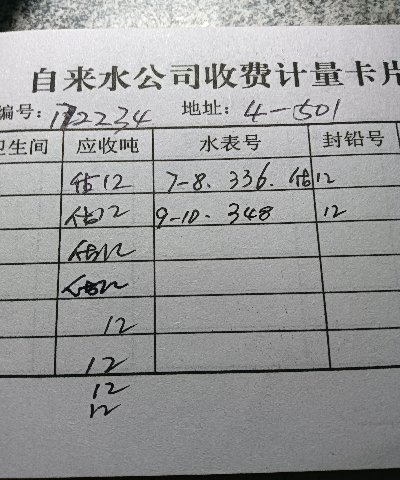 自来水公司收费计量卡片
编号: 172234 地址: 4-501
卫生间 应收吨 水表号 封铅号
估12 7-8. 336. 估12
估12 9-10. 348 12
估12
估12
12
12
12
12